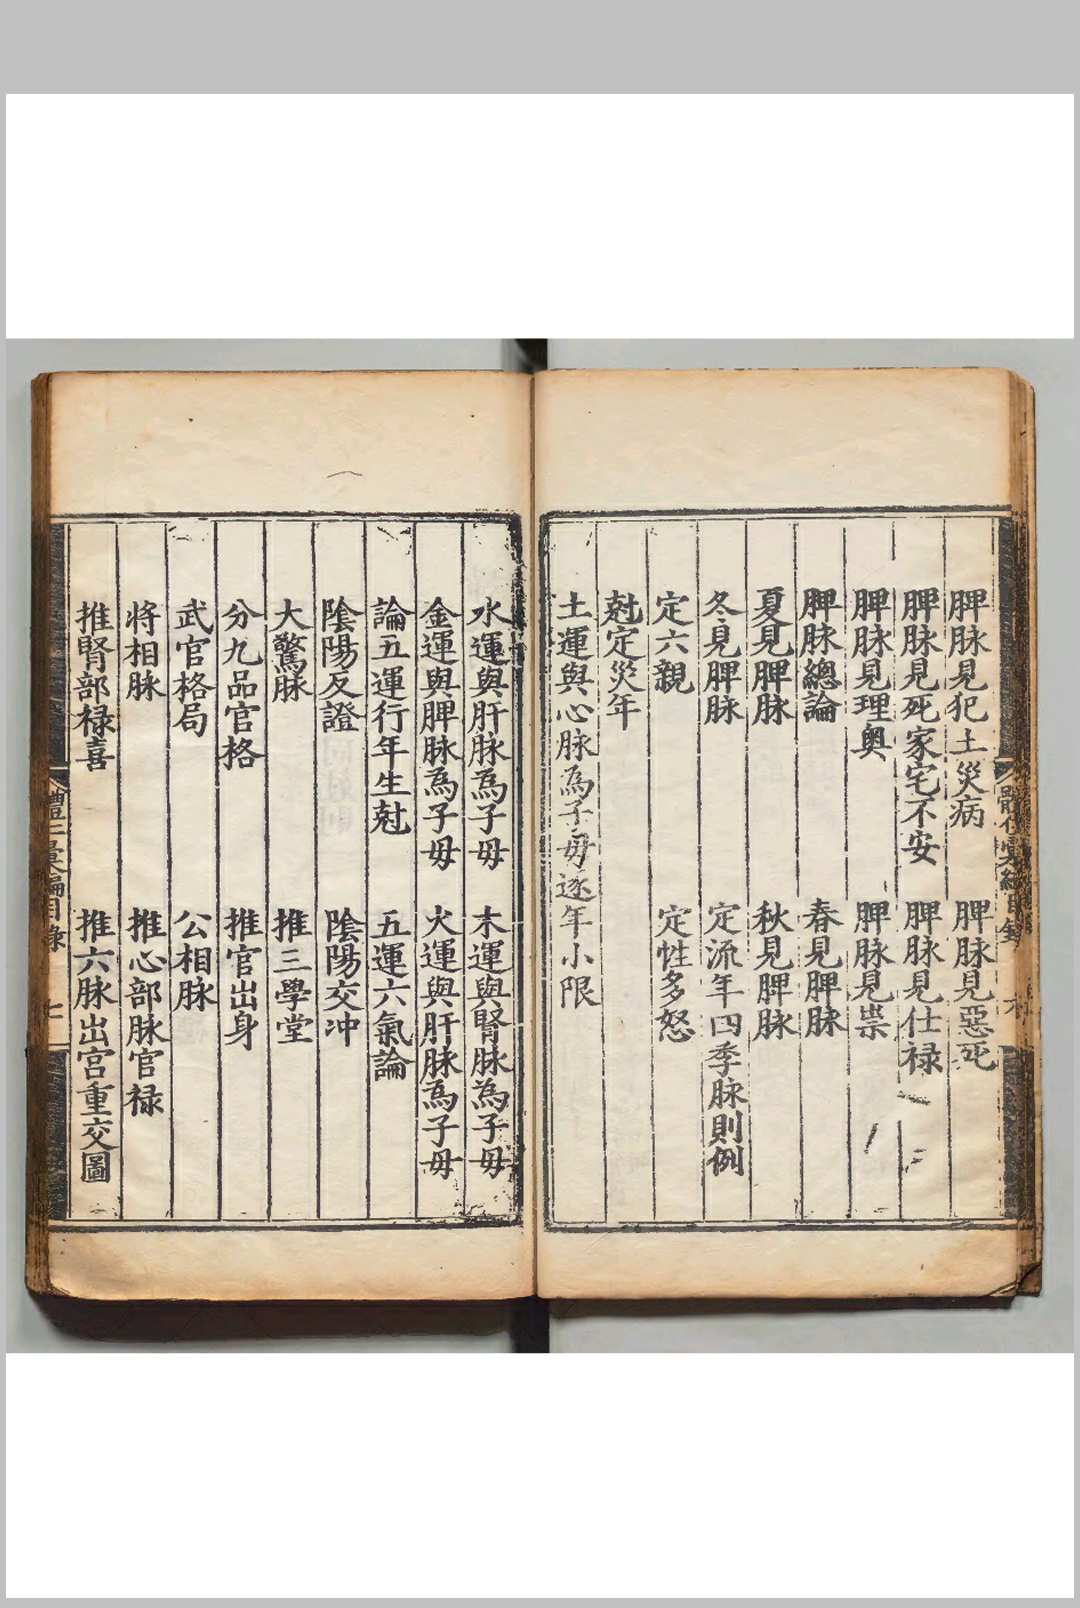 脾脉見犯土災病　脾脉見惡死
脾脉見死家宅不安　脾脉見仕禄
脾脉見理奥　脾脉見祟
脾脉總論　春見脾脉
夏見脾脉　秋見脾脉
冬見脾脉　定流年四季脉則例
定六親　定性多怒
尅定災年
土運與心脉為子母逐年小限
水運與肝脉為子母　木運與腎脉為子母
金運與脾脉為子母　火運與肝脉為子母
論五運行年生尅　五運六氣論
陰陽反證　陰陽交冲
大驚脉　推三學堂
分九品官格　推官出身
武官格局　公相脉
将相脉　推心部脉官禄
推腎部禄喜　推六脉出宫重交圖
體仁彙編目録　七